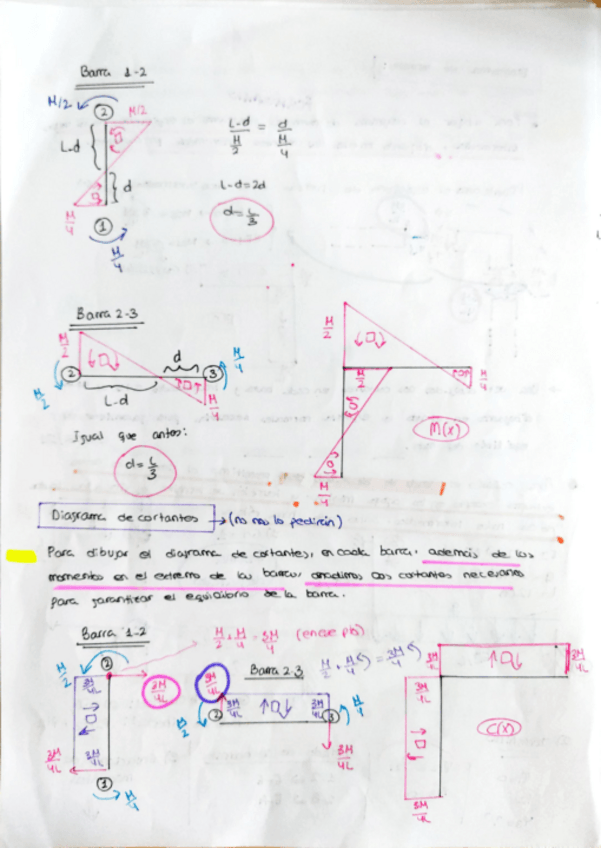 Barra 1-2
M/2
2
M/2
L-d
d
M/4
1
M/4
L-d / M/2 = d / M/4
L-d=2d
d=L/3
Barra 2-3
M/2
2
M/2
L-d
d
3
M/4
M/4
Igual que antes:
d=L/3
M/2
M/2
M/4
M/4
M(x)
Diagrama de cortantes → (no nos lo pedirán)
Para dibujar el diagrama de cortantes, en cada barra, además de los
momentos en el extremo de las barras, añadimos los cortantes necesarios
para garantizar el equilibrio de la barra.
Barra 1-2
M/2 + M/4 = 3M/4
M/2
2
3M/4L
3M/4L
3M/4L
3M/4L
1
M/4
Barra 2-3
M/2 + M/4 = 3M/4
3M/4L
M/2
2
3M/4L
3M/4L
3
M/4
3M/4L
3M/4L
3M/4L
3M/4L
3M/4L
C(x)